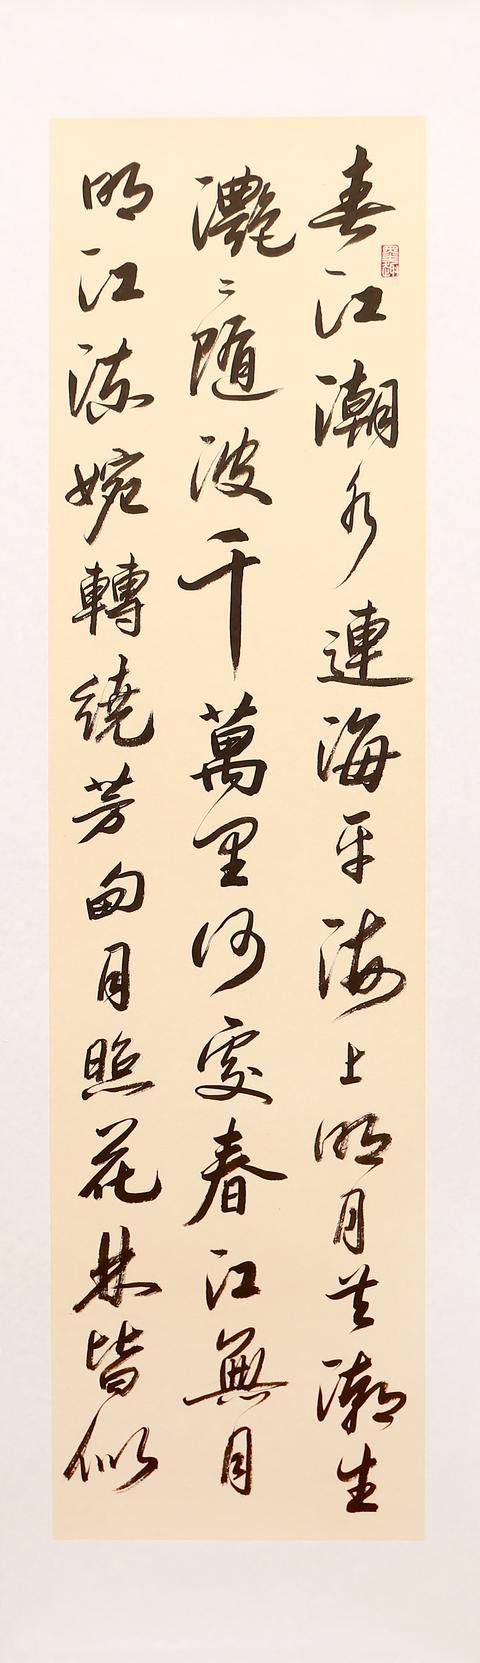 春江潮水連海平海上明月共潮生
灩〻隨波千萬里何處春江無月
明江流婉轉繞芳甸月照花林皆似